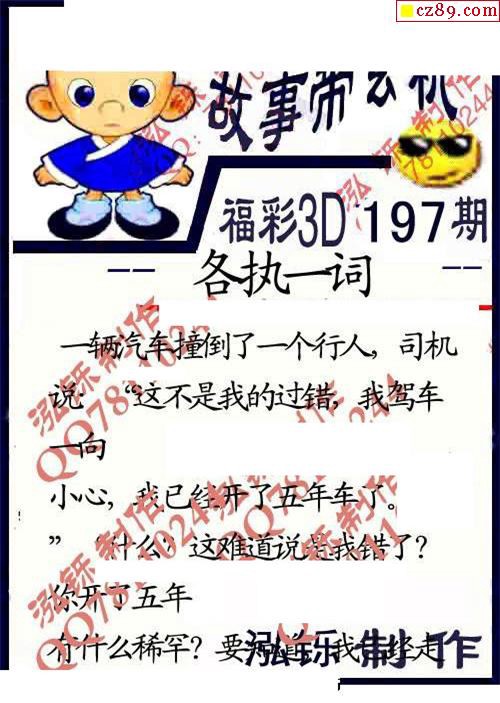 cz89.com
故事带玄机
福彩3D 197期
-- 各执一词 --
一辆汽车撞倒了一个行人，司机
说：“这不是我的过错，我驾车
一向
小心，我已经开了五年车了。
”“什么？这难道说是我错了？
你开了五年
有什么稀罕？要 我 经走
泓铄 制作